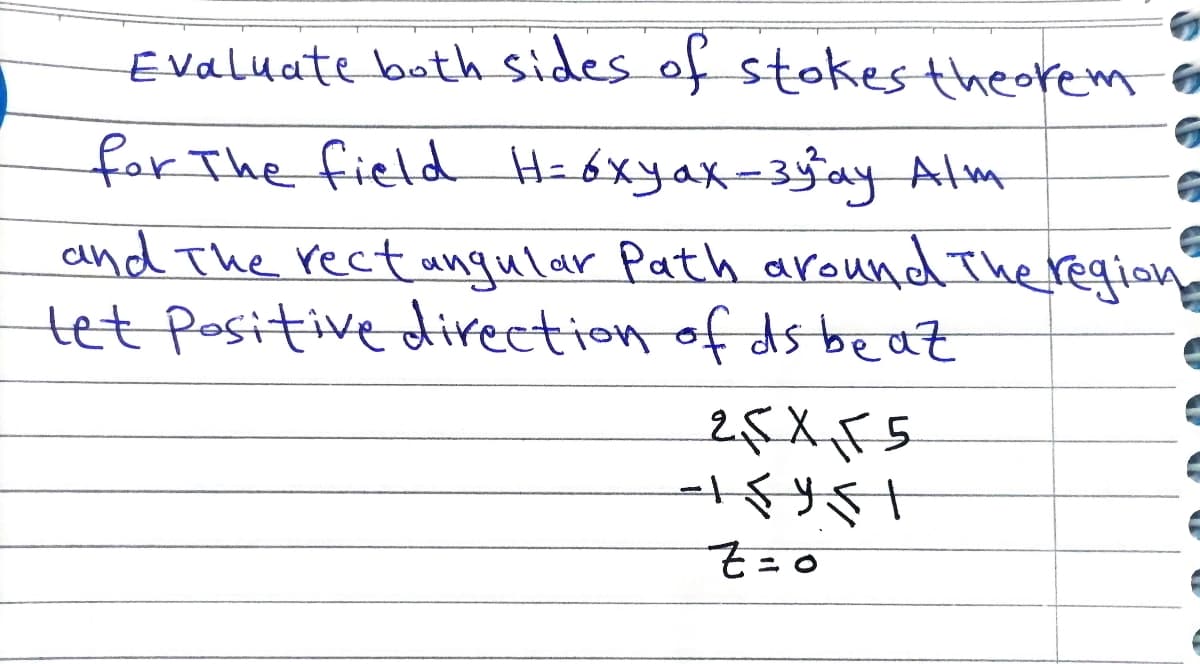 Evaluate both sides of stokes theorem
for The field H=6xyax-3y²ay A/m
and The rectangular Path around The region
let Positive direction of ds be az
2≤X≤5
-1≤y≤1
z=0